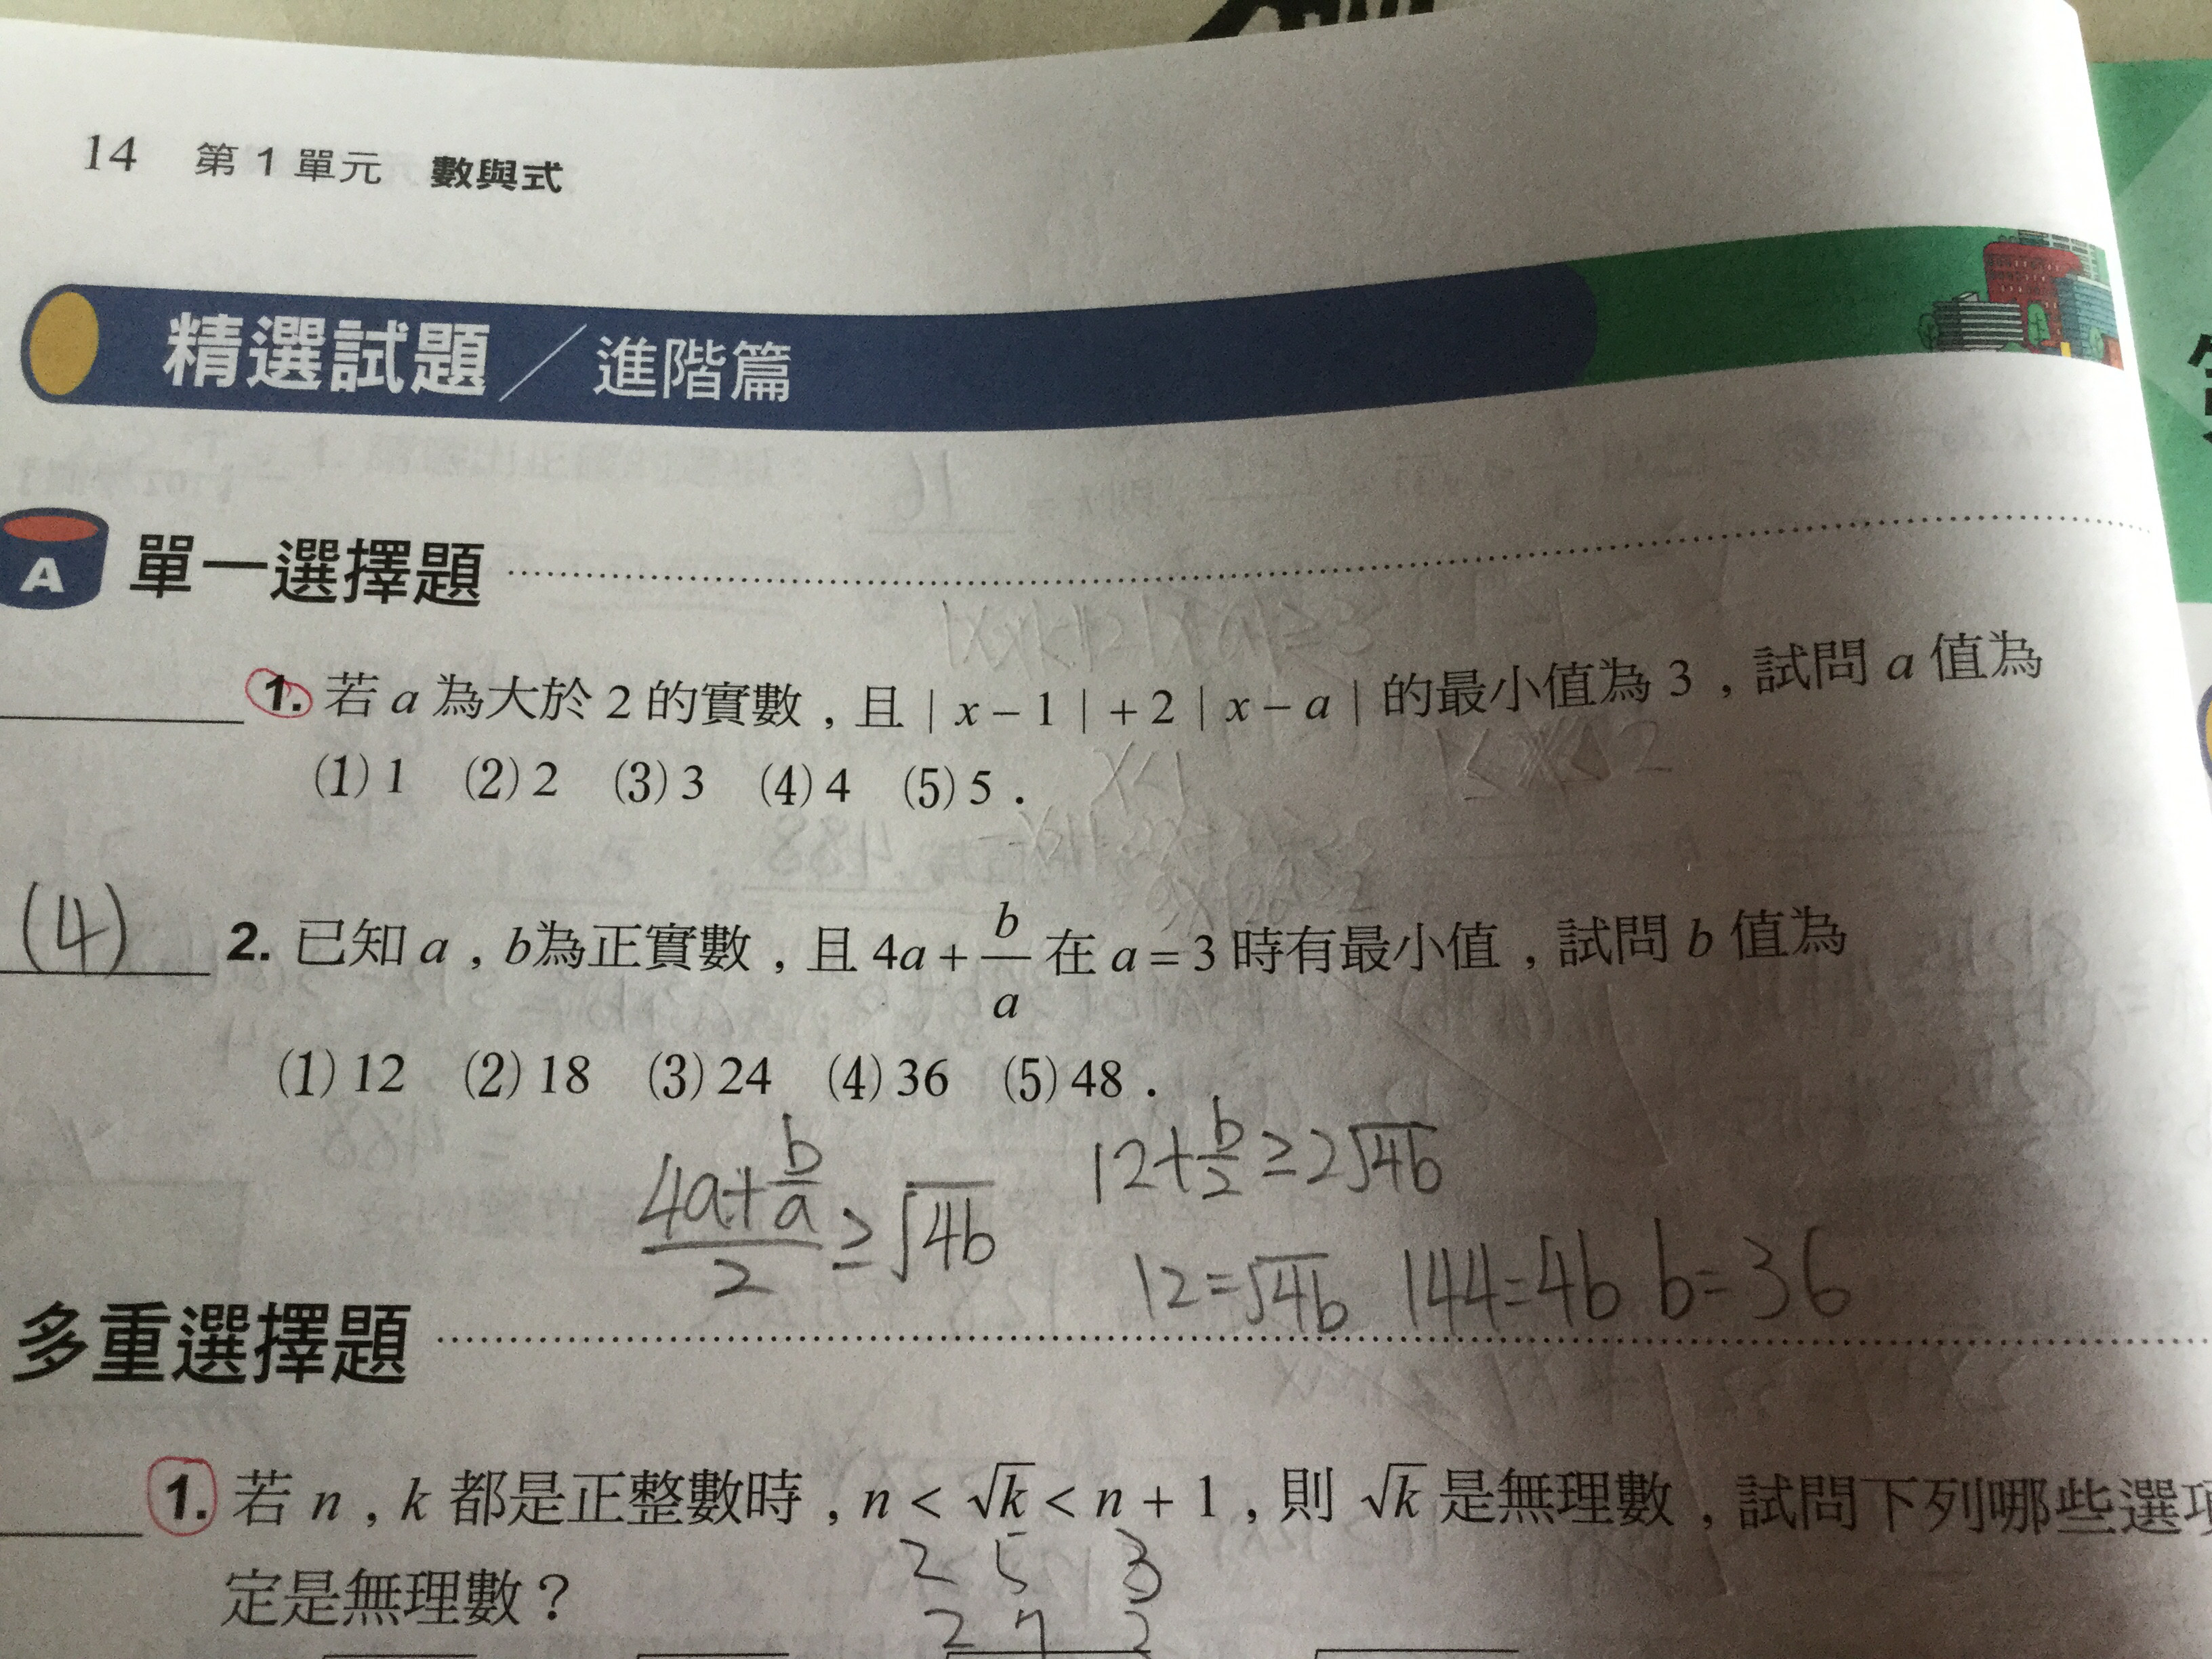 14 第 1 單元 數與式
精選試題／進階篇
A 單一選擇題
1. 若 a 為大於 2 的實數，且 | x − 1 | + 2 | x − a | 的最小值為 3，試問 a 值為
(1) 1 (2) 2 (3) 3 (4) 4 (5) 5．
(4) 2. 已知 a，b為正實數，且 4a + b/a 在 a = 3 時有最小值，試問 b 值為
(1) 12 (2) 18 (3) 24 (4) 36 (5) 48．
(4a+b/a)/2 ≥ √4b
12+b/2 ≥ 2√4b
12=√4b 144=4b b=36
多重選擇題
1. 若 n，k 都是正整數時，n < √k < n + 1，則 √k 是無理數，試問下列哪些選項
2 5 3
定是無理數？
2 7